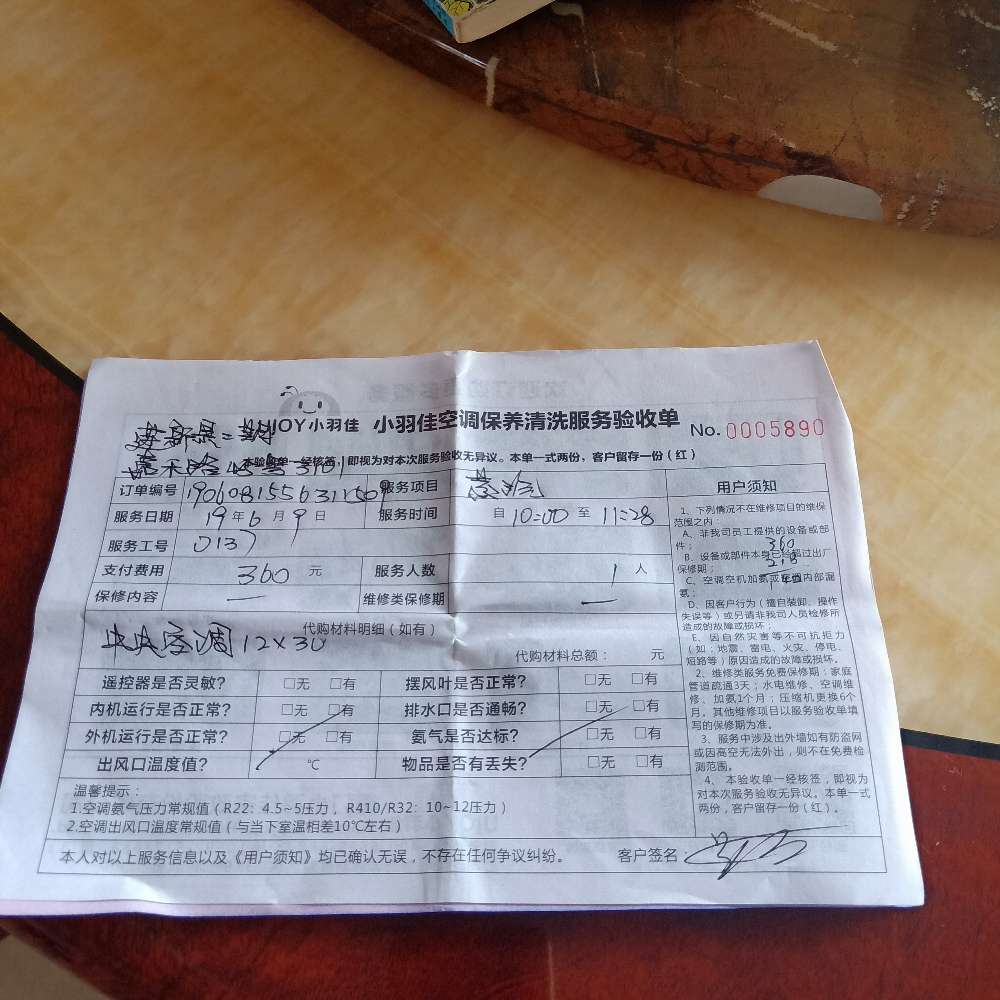 JOY小羽佳 小羽佳空调保养清洗服务验收单 No. 0005890
本验收单一经核签，即视为对本次服务验收无异议。本单一式两份，客户留存一份（红）
订单编号 服务项目
服务日期 19年6月9日 服务时间 自10:00至11:28
服务工号 0137
支付费用 360 元 服务人数 1 人
保修内容 — 维修类保修期 —
代购材料明细（如有）
中央空调12×30
代购材料总额： 元
遥控器是否灵敏？ □无 □有 摆风叶是否正常？ □无 □有
内机运行是否正常？ □无 □有 排水口是否通畅？ □无 □有
外机运行是否正常？ □无 □有 氨气是否达标？ □无 □有
出风口温度值？ ℃ 物品是否有丢失？ □无 □有
温馨提示：
1.空调氨气压力常规值（R22：4.5~5压力，R410/R32：10~12压力）
2.空调出风口温度常规值（与当下室温相差10℃左右）
本人对以上服务信息以及《用户须知》均已确认无误，不存在任何争议纠纷。 客户签名：
用户须知
1、下列情况不在维修项目的维保
范围之内：
A、非我司员工提供的设备或部
件；
360
B、设备或部件本身已经超过出厂
保修期；
C、空调空机加氨或 内部漏
氨；
D、因客户行为（擅自装卸、操作
失误等）或另请非我司人员检修所
造成的故障或损坏；
E、因自然灾害等不可抗拒力
（如：地震、雷电、火灾、停电、
短路等）原因造成的故障或损坏。
2、维修类服务免费保修期：家庭
管道疏通3天；水电维修、空调维
修、加氨1个月；压缩机更换6个
月。其他维修项目以服务验收单填
写的保修期为准。
3、服务中涉及出外墙如有防盗网
或因高空无法外出，则不在免费检
测范围。
4、本验收单一经核签，即视为
对本次服务验收无异议。本单一式
两份，客户留存一份（红）。